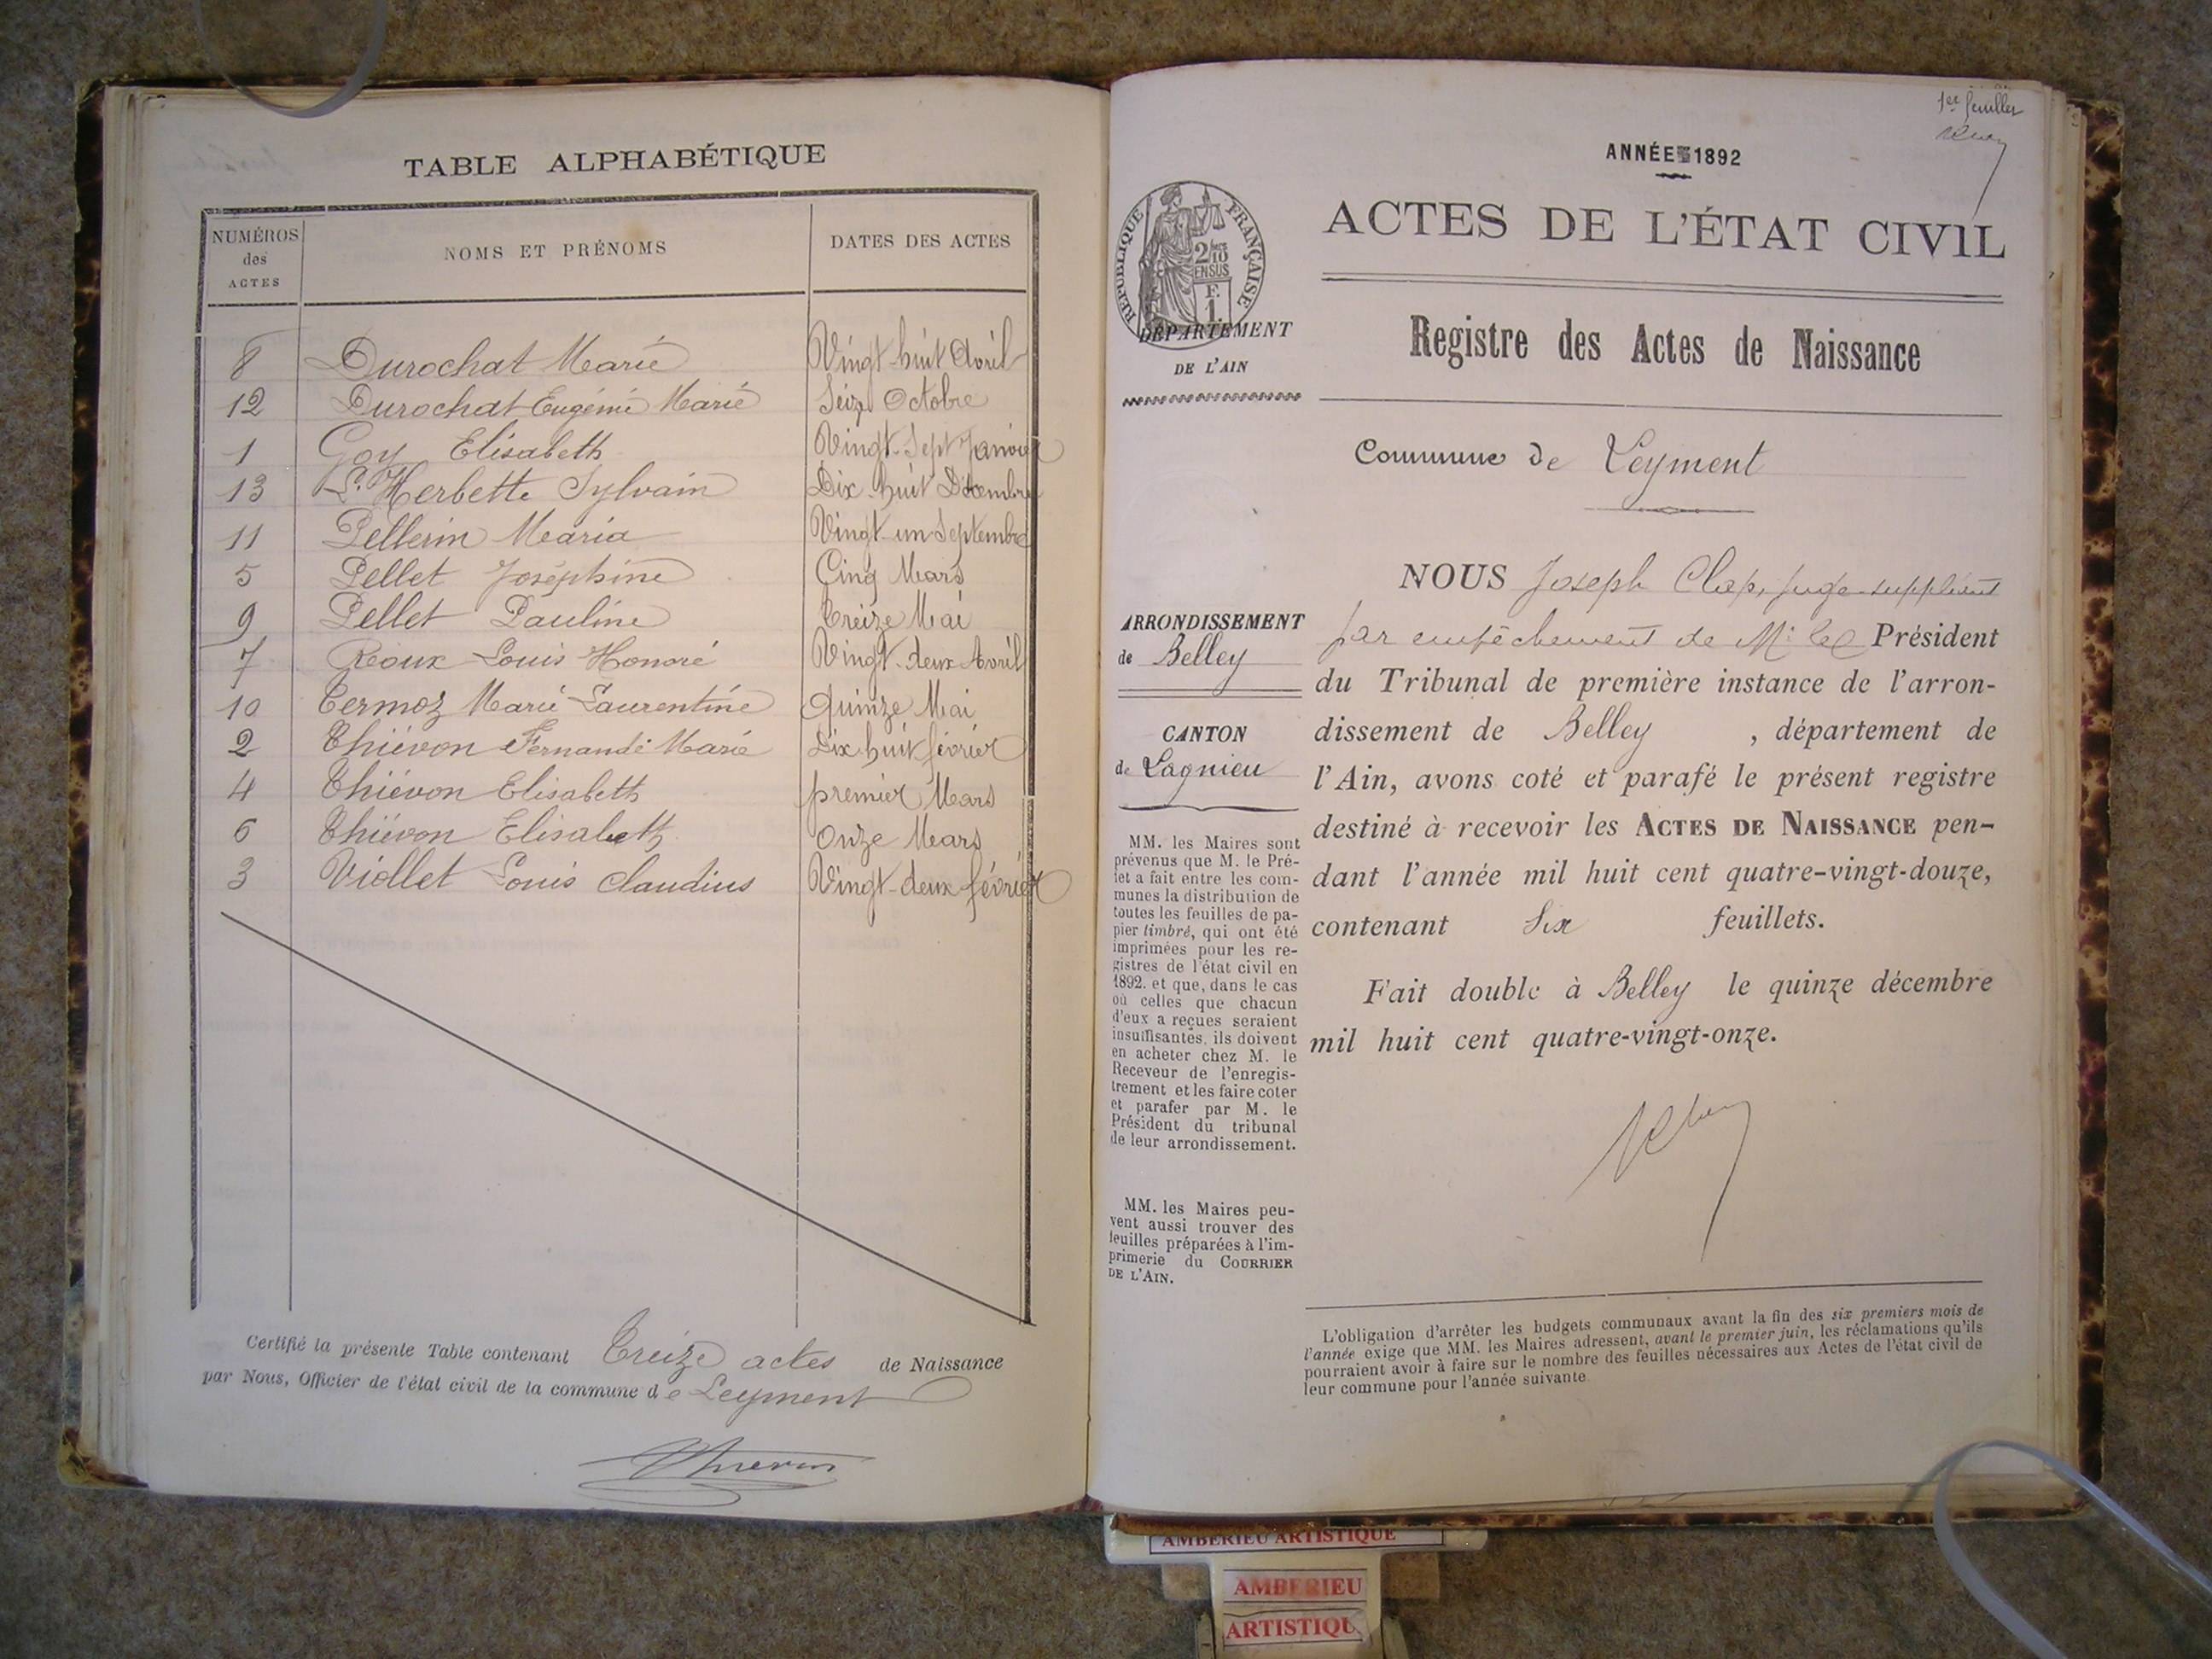 TABLE ALPHABÉTIQUE
NUMÉROS des ACTES
NOMS ET PRÉNOMS
DATES DES ACTES
8 Durochat Marie Vingt-huit Avril
12 Durochat Eugénie Marie Seize Octobre
1 Goy Elisabeth Vingt-Sept Janvier
13 L'Herbette Sylvain Dix-huit Décembre
11 Pellerin Maria Vingt-un Septembre
5 Pellet Joséphine Cinq Mars
9 Pellet Pauline Treize Mai
7 Roux Louis Honoré Vingt-deux Avril
10 Termoz Marie Laurentine Quinze Mai
2 Thiévon Fernande Marie Dix-huit février
4 Thiévon Elisabeth premier Mars
6 Thiévon Elisabeth Onze Mars
3 Viollet Louis Claudius Vingt-deux février
Certifié la présente Table contenant Treize actes de Naissance
par Nous, Officier de l'état civil de la commune de Leyment
1er feuillet
ANNÉE 1892
RÉPUBLIQUE FRANÇAISE
2/10 EN SUS
F. 1.
ACTES DE L'ÉTAT CIVIL
DÉPARTEMENT
DE L'AIN
Registre des Actes de Naissance
Commune de Leyment
ARRONDISSEMENT
de Belley
CANTON
de Lagnieu
MM. les Maires sont
prévenus que M. le Pré-
fet a fait entre les com-
munes la distribution de
toutes les feuilles de pa-
pier timbré, qui ont été
imprimées pour les re-
gistres de l'état civil en
1892. et que, dans le cas
où celles que chacun
d'eux a reçues seraient
insuffisantes, ils doivent
en acheter chez M. le
Receveur de l'enregis-
trement et les faire coter
et parafer par M. le
Président du tribunal
de leur arrondissement.
MM. les Maires peu-
vent aussi trouver des
feuilles préparées à l'im-
primerie du COURRIER
DE L'AIN.
NOUS Joseph Clap, juge-suppléant
par empêchement de M. le Président
du Tribunal de première instance de l'arron-
dissement de Belley , département de
l'Ain, avons coté et parafé le présent registre
destiné à recevoir les ACTES DE NAISSANCE pen-
dant l'année mil huit cent quatre-vingt-douze,
contenant Six feuillets.
Fait double à Belley le quinze décembre
mil huit cent quatre-vingt-onze.
L'obligation d'arrêter les budgets communaux avant la fin des six premiers mois de
l'année exige que MM. les Maires adressent, avant le premier juin, les réclamations qu'ils
pourraient avoir à faire sur le nombre des feuilles nécessaires aux Actes de l'état civil de
leur commune pour l'année suivante.
AMBERIEU ARTISTIQUE
AMBERIEU
ARTISTIQU